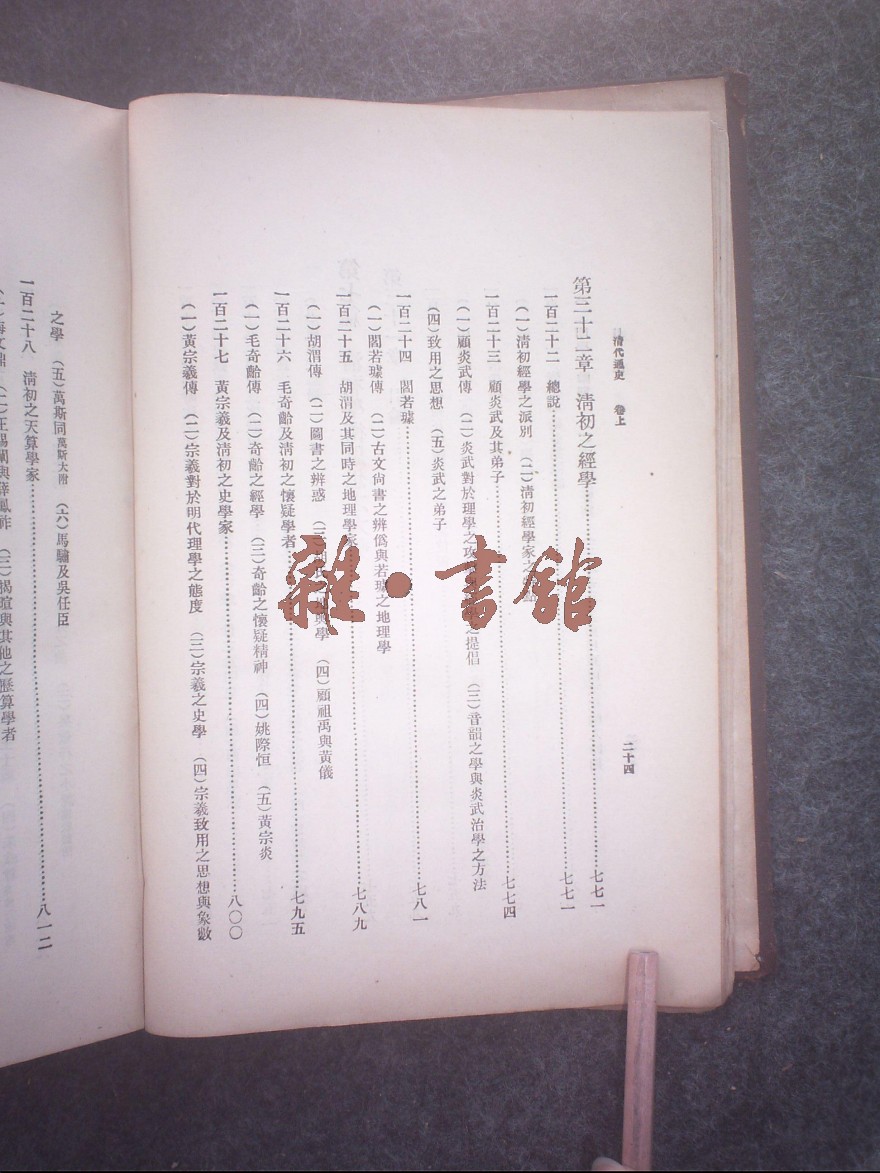 清代通史 卷上
二十四
第三十二章 清初之經學……七七一
一百二十二 總說……七七一
(一)清初經學之派別 (二)清初經學家之
一百二十三 顧炎武及其弟子……七七四
(一)顧炎武傳 (二)炎武對於理學之攻 之提倡 (三)音韻之學與炎武治學之方法
(四)致用之思想 (五)炎武之弟子
一百二十四 閻若璩……七八一
(一)閻若璩傳 (二)古文尚書之辨僞與若璩之地理學
一百二十五 胡渭及其同時之地理學家……七八九
(一)胡渭傳 (二)圖書之辨惑 學 (四)顧祖禹與黃儀
一百二十六 毛奇齡及清初之懷疑學者……七九五
(一)毛奇齡傳 (二)奇齡之經學 (三)奇齡之懷疑精神 (四)姚際恒 (五)黃宗炎
一百二十七 黃宗羲及清初之史學家……八〇〇
(一)黃宗羲傳 (二)宗羲對於明代理學之態度 (三)宗羲之史學 (四)宗羲致用之思想與象數
之學 (五)萬斯同萬斯大附 (六)馬驌及吳任臣
一百二十八 清初之天算學家……八一二
(一)梅文鼎 (二)王錫闡與薛鳳祚 (三)揭暄與其他之歷算學者
雜·書館